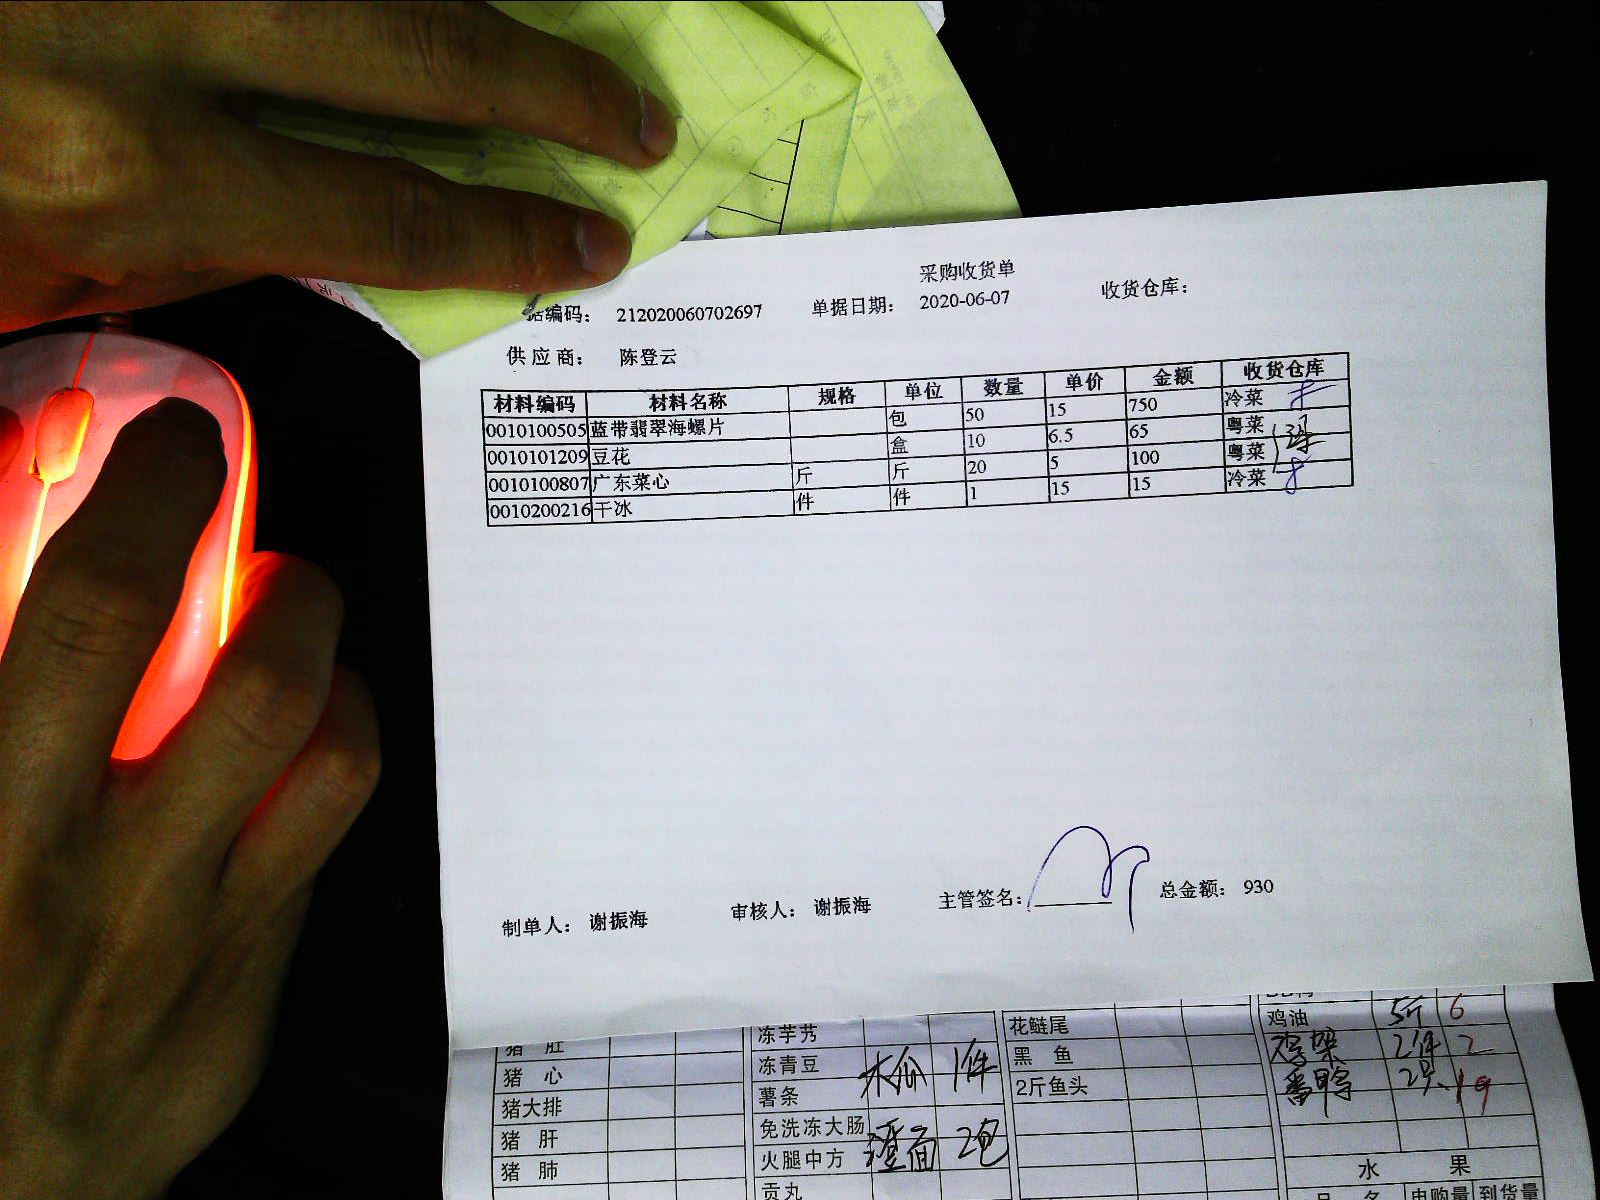 采购收货单
据编码： 212020060702697 单据日期： 2020-06-07 收货仓库：
供应商： 陈登云
材料编码 材料名称 规格 单位 数量 单价 金额 收货仓库
0010100505 蓝带翡翠海螺片 包 50 15 750 冷菜
0010101209 豆花 盒 10 6.5 65 粤菜
0010100807 广东菜心 斤 斤 20 5 100 粤菜
0010200216 干冰 件 件 1 15 15 冷菜
制单人： 谢振海 审核人： 谢振海 主管签名： 总金额： 930
猪肚 冻芋艿 花鲢尾 鸡油 5斤 6
猪心 冻青豆 木瓜 1件 黑鱼 2件 2
猪大排 薯条 2斤鱼头 番鸭 2只 19
猪肝 免洗冻大肠
猪肺 火腿中方 澄面 2包 水果
贡丸 品名 申购量 到货量